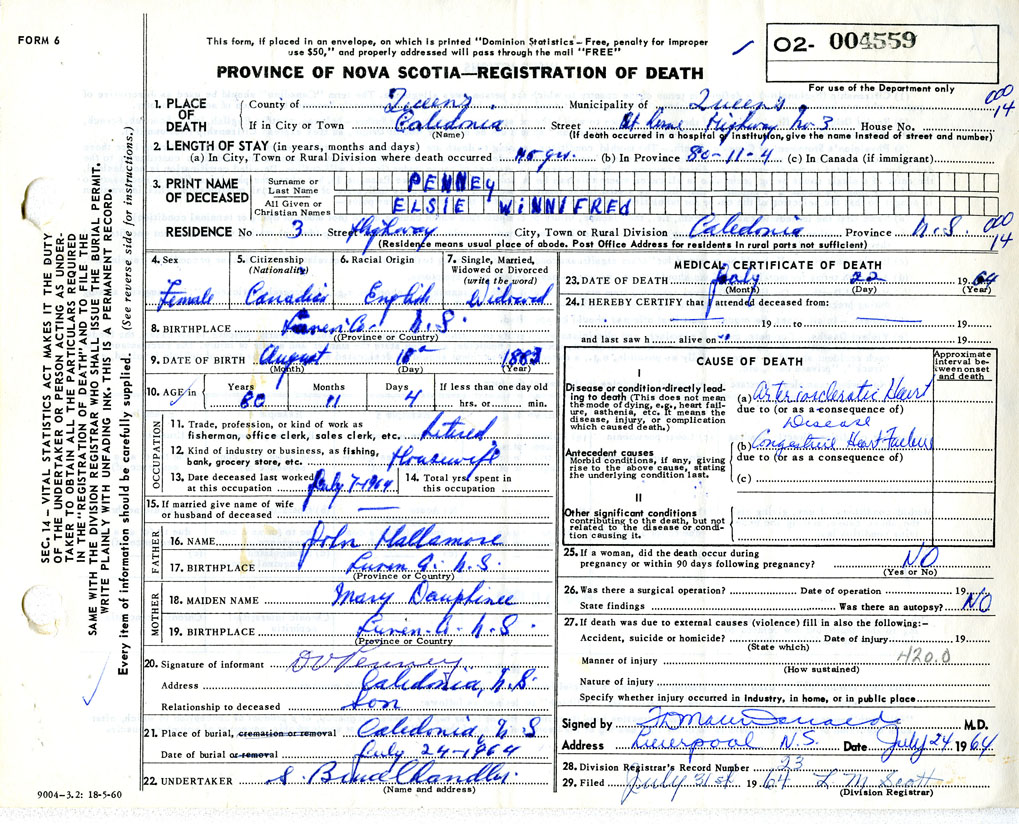 FORM 6
This form, if placed in an envelope, on which is printed "Dominion Statistics – Free, penalty for improper
use $50," and properly addressed will pass through the mail "FREE"
O2- 004559
PROVINCE OF NOVA SCOTIA—REGISTRATION OF DEATH
For use of the Department only
000
14
1. PLACE OF DEATH
County of Queens Municipality of Queens
If in City or Town Caledonia Street At home Highway No. 3 House No.
(Name) (If death occurred in a hospital or institution, give the name instead of street and number)
2. LENGTH OF STAY (in years, months and days)
(a) In City, Town or Rural Division where death occurred 40 yrs. (b) In Province 80-11-4 (c) In Canada (if immigrant)
3. PRINT NAME OF DECEASED
Surname or Last Name PENNEY
All Given or Christian Names ELSIE WINNIFRED
RESIDENCE No 3 Street Highway City, Town or Rural Division Caledonia Province N.S.
000
14
(Residence means usual place of abode. Post Office Address for residents in rural parts not sufficient)
4. Sex
Female
5. Citizenship
(Nationality)
Canadian
6. Racial Origin
English
7. Single, Married,
Widowed or Divorced
(write the word)
Widowed
8. BIRTHPLACE Lunen Co. N.S.
(Province or Country)
9. DATE OF BIRTH August 18th 1883
(Month) (Day) (Year)
10. AGE in Years Months Days If less than one day old
80 11 4 hrs. or min.
OCCUPATION
11. Trade, profession, or kind of work as
fisherman, office clerk, sales clerk, etc. Retired
12. Kind of industry or business, as fishing,
bank, grocery store, etc. Housewife
13. Date deceased last worked
at this occupation July 7-1964
14. Total yrs. spent in
this occupation
15. If married give name of wife
or husband of deceased
FATHER
16. NAME John Hallamore
17. BIRTHPLACE Lunen Co. N.S.
(Province or Country)
MOTHER
18. MAIDEN NAME Mary Dauphinee
19. BIRTHPLACE Lunen Co. N.S.
(Province or Country)
20. Signature of informant D V Penney
Address Caledonia, N.S.
Relationship to deceased Son
21. Place of burial, cremation or removal Caledonia, N.S
Date of burial or removal July 24-1964
22. UNDERTAKER S. Chandler
(Name and address)
9004–3.2: 18-5-60
MEDICAL CERTIFICATE OF DEATH
23. DATE OF DEATH July 22 1964
(Month) (Day) (Year)
24. I HEREBY CERTIFY that I attended deceased from:
19 to 19
and last saw h alive on 19
CAUSE OF DEATH
Approximate
interval be-
tween onset
and death
I
Disease or condition directly lead-
ing to death (This does not mean
the mode of dying, e.g., heart fail-
ure, asthenia, etc. It means the
disease, injury, or complication
which caused death.)
(a) Arteriosclerotic Heart
due to (or as a consequence of)
Disease
Antecedent causes
Morbid conditions, if any, giving
rise to the above cause, stating
the underlying condition last.
(b) Congestive Heart Failure
due to (or as a consequence of)
(c)
II
Other significant conditions
contributing to the death, but not
related to the disease or condi-
tion causing it.
25. If a woman, did the death occur during
pregnancy or within 90 days following pregnancy? NO
(Yes or No)
26. Was there a surgical operation? Date of operation 19
State findings Was there an autopsy? NO
27. If death was due to external causes (violence) fill in also the following:–
Accident, suicide or homicide? Date of injury 19
(State which)
420.0
Manner of injury
(How sustained)
Nature of injury
Specify whether injury occurred in Industry, in home, or in public place
Signed by M.D.
Address Liverpool N.S. Date July 24 1964
28. Division Registrar's Record Number 23
29. Filed July 31st 1964 L M Scott
(Division Registrar)
SEC. 14 – VITAL STATISTICS ACT MAKES IT THE DUTY
OF THE UNDERTAKER OR PERSON ACTING AS UNDER-
TAKER "TO OBTAIN ALL THE PARTICULARS REQUIRED
IN THE "REGISTRATION OF DEATH" AND TO FILE THE
SAME WITH THE DIVISION REGISTRAR WHO SHALL ISSUE THE BURIAL PERMIT.
WRITE PLAINLY WITH UNFADING INK. THIS IS A PERMANENT RECORD.
Every item of information should be carefully supplied. (See reverse side for instructions.)